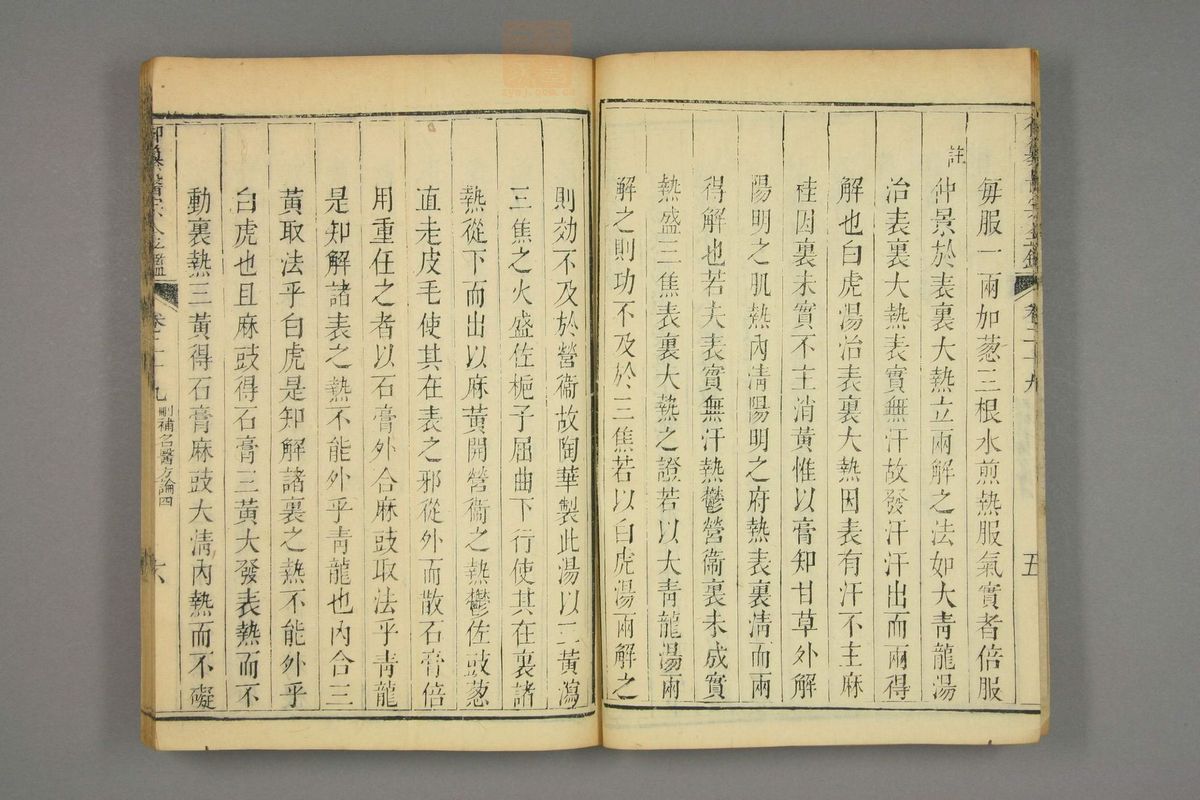 每服一兩加葱三根水煎熱服氣實者倍服
註
仲景於表裏大熱立兩解之法如大青龍湯
治表裏大熱表實無汗故發汗汗出而兩得
解也白虎湯治表裏大熱因表有汗不主麻
桂因裏未實不主消黃惟以膏知甘草外解
陽明之肌熱內淸陽明之府熱表裏淸而兩
得解也若夫表實無汗熱鬱營衞裏未成實
熱盛三焦表裏大熱之證若以大靑龍湯兩
解之則功不及於三焦若以白虎湯兩解之
卷二十九
五
則効不及於營衞故陶華製此湯以三黃瀉
三焦之火盛佐梔子屈曲下行使其在裏諸
熱從下而出以麻黃開營衞之熱鬱佐豉葱
直走皮毛使其在表之邪從外而散石膏倍
用重任之者以石膏外合麻豉取法乎靑龍
是知解諸表之熱不能外乎靑龍也內合三
黃取法乎白虎是知解諸裏之熱不能外乎
白虎也且麻豉得石膏三黃大發表熱而不
動裏熱三黃得石膏麻豉大淸內熱而不礙
御纂醫宗金鑑
卷二十九
刪補名醫方論四
六